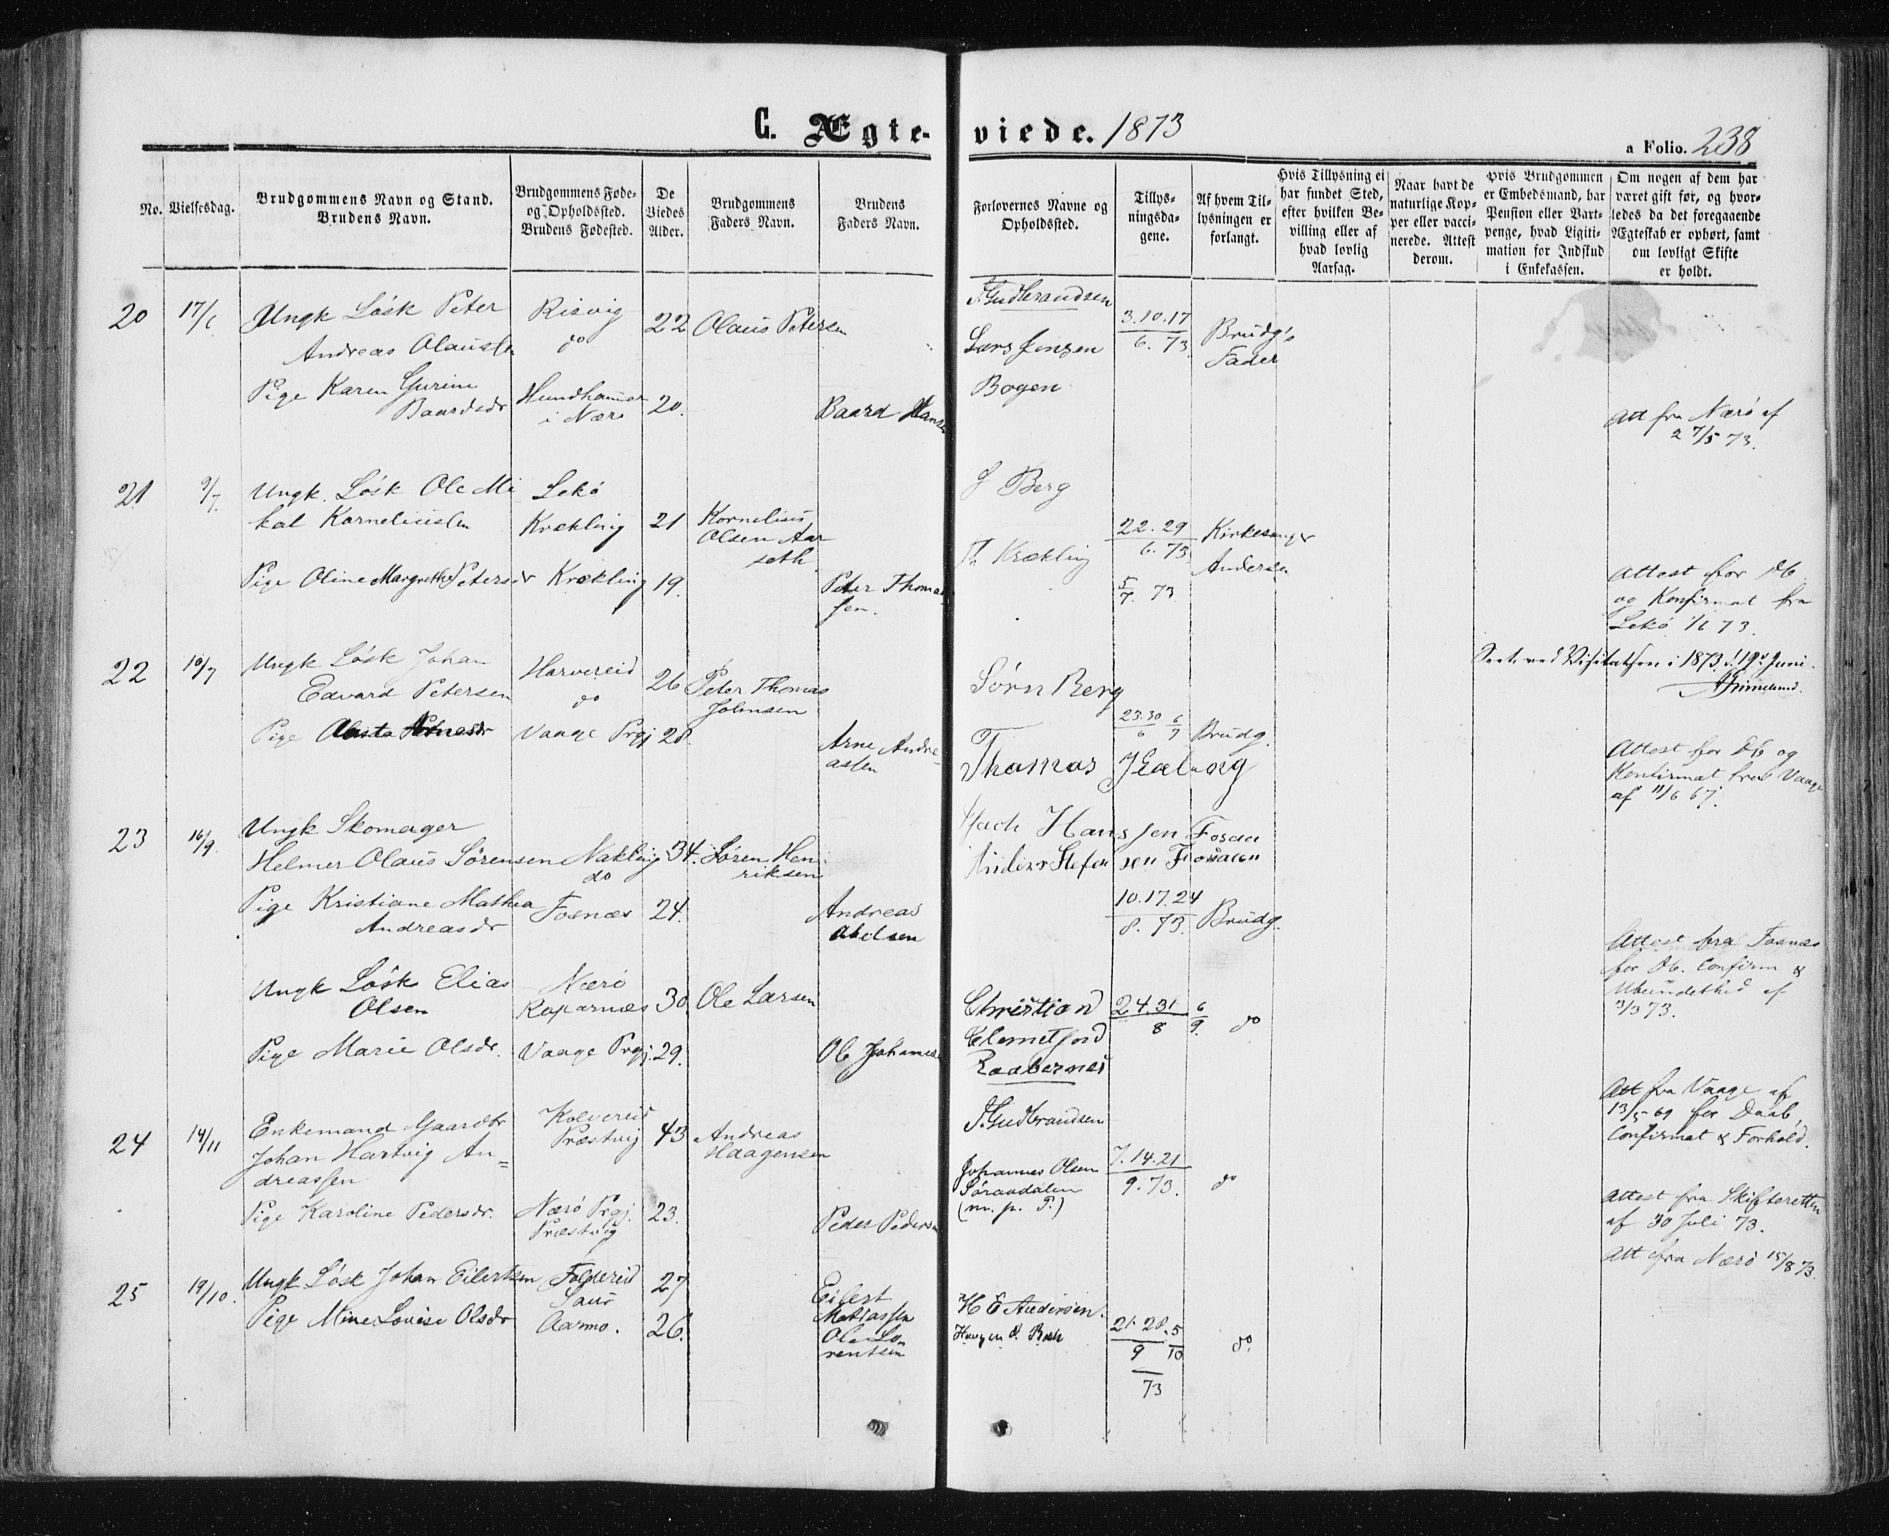 C. Ægteviede. 1873
a Folio. 238
No.
Vielsesdag.
Brudgommens Navn og Stand.
Brudens Navn.
Brudgommens Føde-
og Opholdssted.
Brudens Fødested.
De
Viedes
Alder.
Brudgommens
Faders Navn.
Brudens
Faders Navn.
Forlovernes Navne og
Opholdssted.
Tillys-
ningsda-
gene.
Af hvem Til-
lysningen er
forlangt.
Hvis Tillysning ei
har fundet Sted,
efter hvilken Be-
villing eller af
hvad lovlig
Aarsag.
Naar havt de
naturlige Kop-
per eller vacci-
nerede. Attest
derom.
Hvis Brudgommen
er Embedsmand, har
Pension eller Vart-
penge, hvad Ligiti-
mation for Indskud
i Enkekassen.
Om nogen af dem har
været gift før, og hvor-
ledes da det foregaaende
Ægteskab er ophørt, samt
om lovligt Skifte
er holdt.
20 17/6 Ungk Løsk Peter
Andreas Olaussen
Risvig
do
22 Olaus Petersen
Pige Karen Gurine
Baardsdr
Hundhammer
i Nærø
20. Baard Hansen
T. Gudbrandsen
Lars Jensen
Bogen
3.10.17
6. 73
Brudg's
Fader
Att fra Nærø af
27/5 73.
21 9/7 Ungk. Løsk Ole Mi
kal Korneliussen
Lekø
Krækling
21 Kornelius
Olsen Aar
seth.
Pige Oline Margrethe Petersdr Krækling 19. Peter Thomas
sen.
S Berg
Th Krækling
22.29
6. 73
5
7. 73
Kirkesanger
Andersen
Attest for Db
og Konfirmat fra
Lekø 1/6 73.
22 10/7 Ungk Løsk Johan
Edvard Petersen
Harvereid
do
26 Peter Thomas
Johnsen
Pige Arnesdr Vaage Prgj 28. Arne Andre-
assen
Sørn Berg
Thomas
23.30 6
6 7
Brudg.
Seet ved Visitatsen i 1873 d. 19de Juni.
Grimelund.
Attest for Db og
Konfirmat fra Vaage
af 11/6 67.
23 16/9. Ungk Skomager
Helmer Olaus Sørensen Nakling
do
34. Søren Hen
riksen
Pige Kristiane Mathea
Andreasdr
Fosnæs 24. Andreas
Abelsen
Hansen Fosaa
Anders Stefensen Frosalen
10.17.24
8. 73.
Brudg.
Attest fra Fosnæs
for Db. Confirm &
Ubundethed af
3/3 73.
Ungk Løsk Elias
Olsen
Nærø
Raparnæs
30. Ole Larsen
Pige Marie Olsdr. Vaage Prgj. 29. Ole Johannes
Christian
Elemetfjord
Raabernes
24.31 6
8 9.
do
Att fra Vaage af
13/5 69 for Daab,
Confirmat & Forhold.
24 14/11 Enkemand Gaardbr
Johan Hartvig An=
dreassen
Kolvereid
Præstvig
43 Andreas
Haagensen
Pige Karoline Pedersdr. Nærø Prgj.
Præstvig
23. Peder Pedersen
T. Gudbrandsen
Johannes Olsen
Søraadalen
(m. p. P.)
7.14.21
9. 73.
do
Attest fra Skifteretten
af 30 Juli 73.
Att fra Nærø 15/8 73.
25 19/10. Ungk Løsk Johan Eilertsen Foldereid
27 Eilert
Matiassen
Pige Mine Lovise Olsdr Aarmo. 26. Ole Lo-
rentsen
H E Andersen.
21.28.5
9 10
73
do.